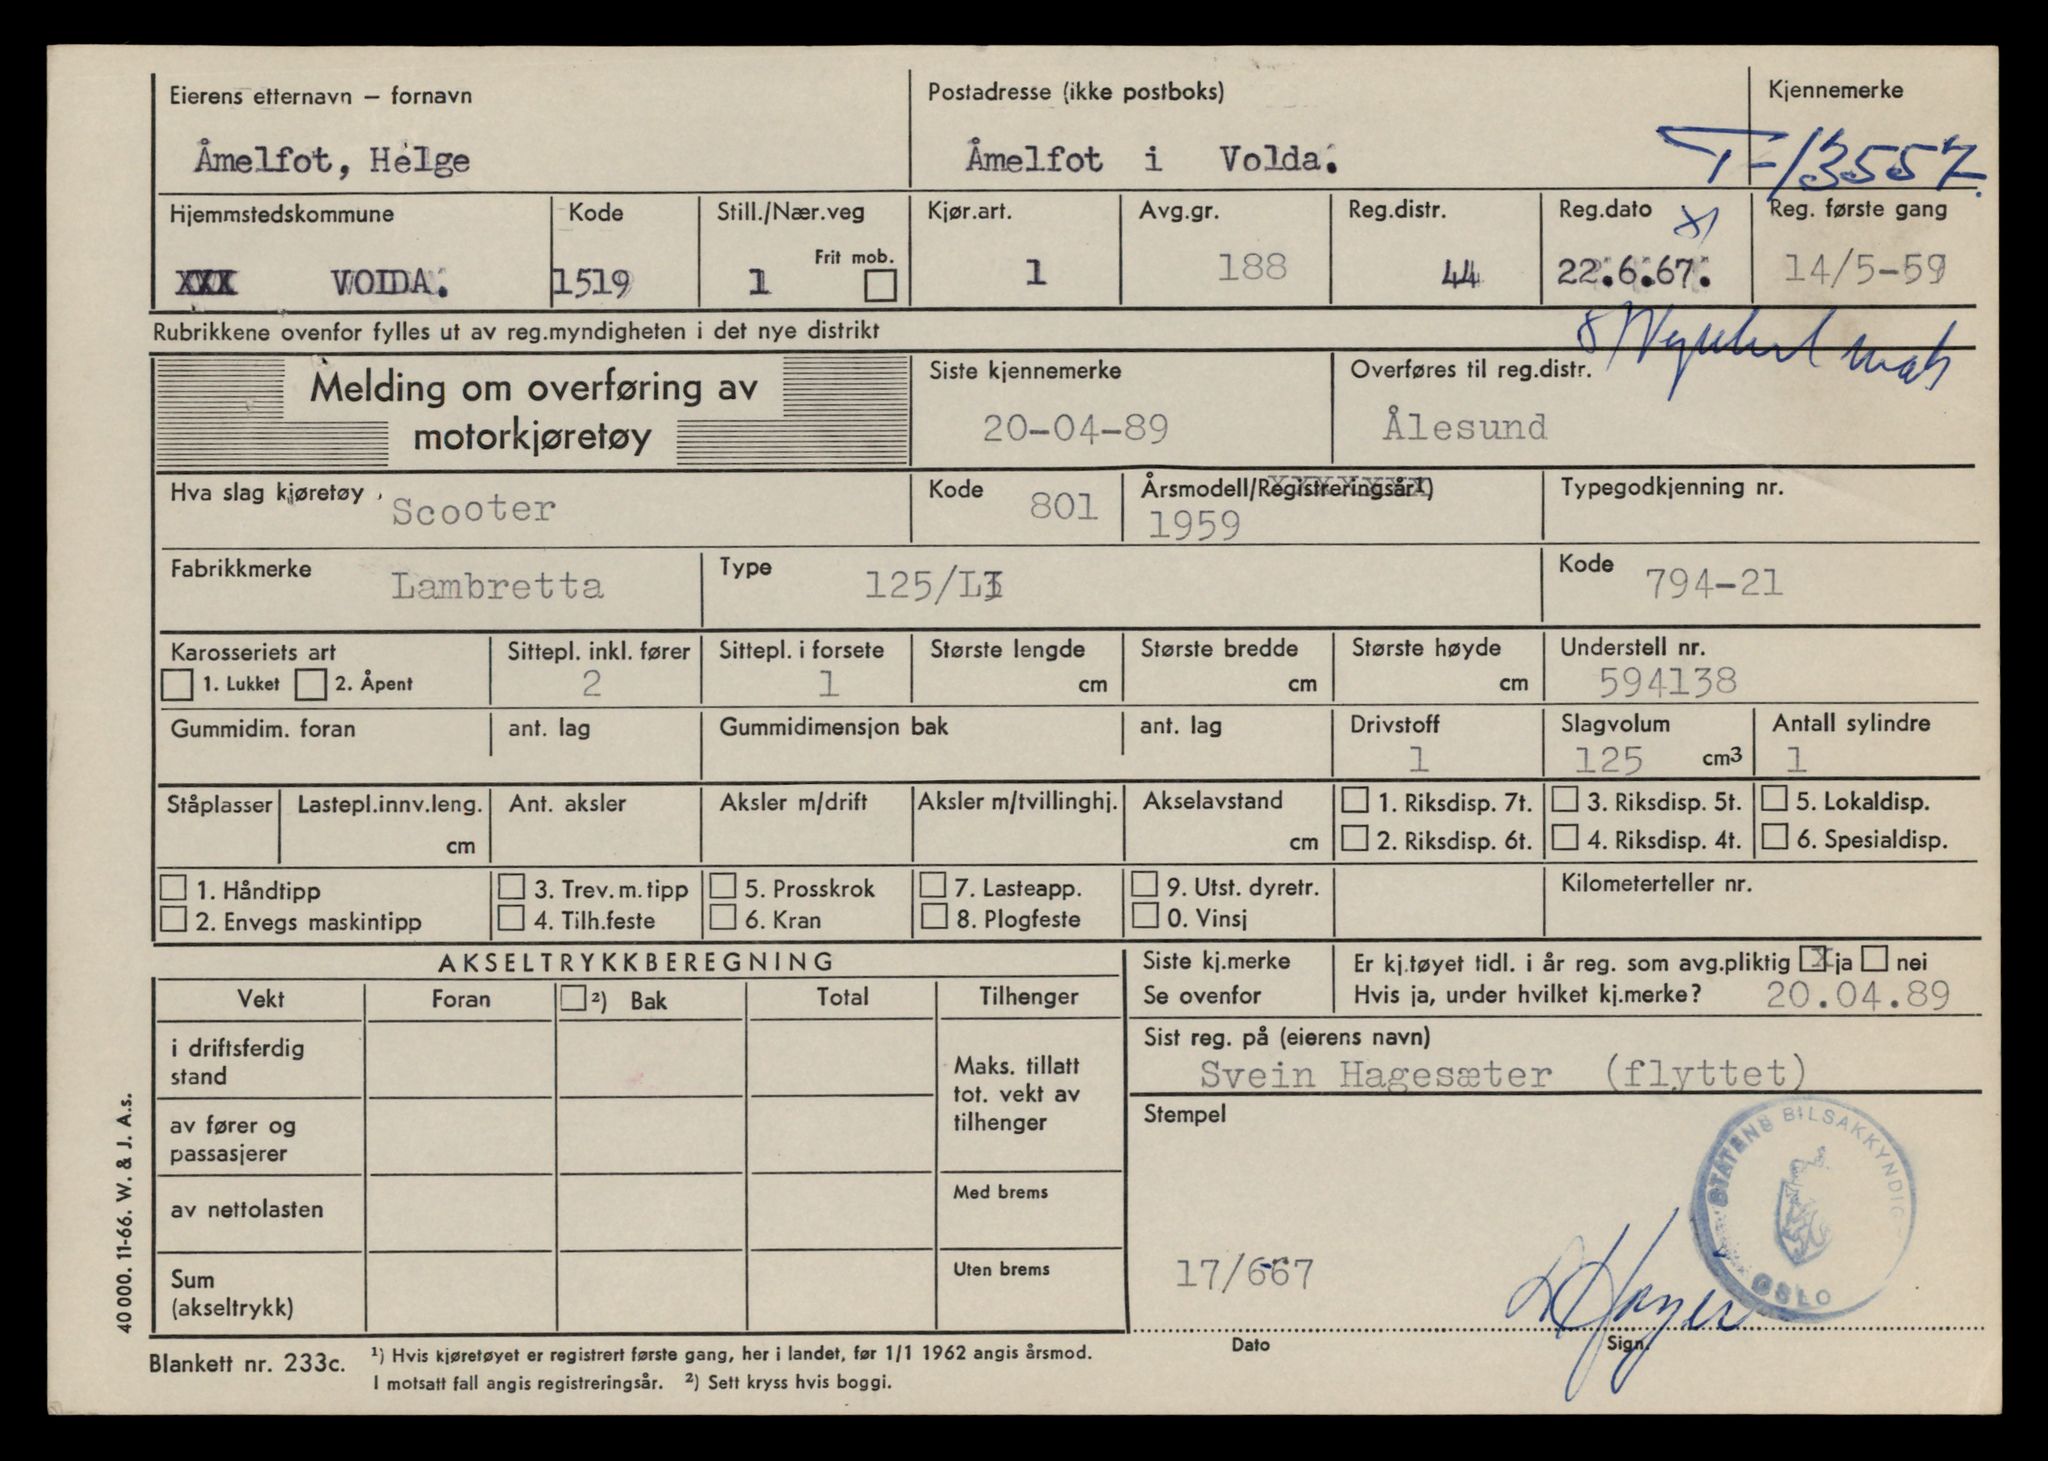 Eierens etternavn – fornavn
Åmelfot, Helge
Postadresse (ikke postboks)
Åmelfot i Volda.
Kjennemerke
T-13557
Hjemmstedskommune
XXX VOLDA.
Kode
1519
Still./Nær.veg
1
Frit mob.
Kjør.art.
1
Avg.gr.
188
Reg.distr.
44
Reg.dato
22.6.67.
Reg. første gang
14/5-59
Rubrikkene ovenfor fylles ut av reg.myndigheten i det nye distrikt
Melding om overføring av
motorkjøretøy
Siste kjennemerke
20-04-89
Overføres til reg.distr.
Ålesund
Hva slag kjøretøy
Scooter
Kode
801
Årsmodell/Registreringsår¹)
1959
Typegodkjenning nr.
Fabrikkmerke
Lambretta
Type
125/LI
Kode
794-21
Karosseriets art
1. Lukket 2. Åpent
Sittepl. inkl. fører
2
Sittepl. i forsete
1
Største lengde
cm
Største bredde
cm
Største høyde
cm
Understell nr.
594138
Gummidim. foran
ant. lag
Gummidimensjon bak
ant. lag
Drivstoff
1
Slagvolum
125 cm3
Antall sylindre
1
Ståplasser
Lastepl.innv.leng.
cm
Ant. aksler
Aksler m/drift
Aksler m/tvillinghj.
Akselavstand
cm
1. Riksdisp. 7t.
2. Riksdisp. 6t.
3. Riksdisp. 5t.
4. Riksdisp. 4t.
5. Lokaldisp.
6. Spesialdisp.
1. Håndtipp
2. Envegs maskintipp
3. Trev. m. tipp
4. Tilh.feste
5. Prosskrok
6. Kran
7. Lasteapp.
8. Plogfeste
9. Utst. dyretr.
0. Vinsj
Kilometerteller nr.
AKSELTRYKKBEREGNING
Vekt Foran ²) Bak Total Tilhenger
i driftsferdig
stand
av fører og
passasjerer
av nettolasten
Sum
(akseltrykk)
Maks. tillatt
tot. vekt av
tilhenger
Med brems
Uten brems
Siste kj.merke
Se ovenfor
Er kj.tøyet tidl. i år reg. som avg.pliktig X ja nei
Hvis ja, under hvilket kj.merke? 20.04.89
Sist reg. på (eierens navn)
Svein Hagesæter (flyttet)
Stempel
STATENS BILSAKKYNDIGE
OSLO
17/667
Dato
Sign.
40 000. 11-66. W. & J. A.s.
Blankett nr. 233c.
¹) Hvis kjøretøyet er registrert første gang, her i landet, før 1/1 1962 angis årsmod.
I motsatt fall angis registreringsår. ²) Sett kryss hvis boggi.